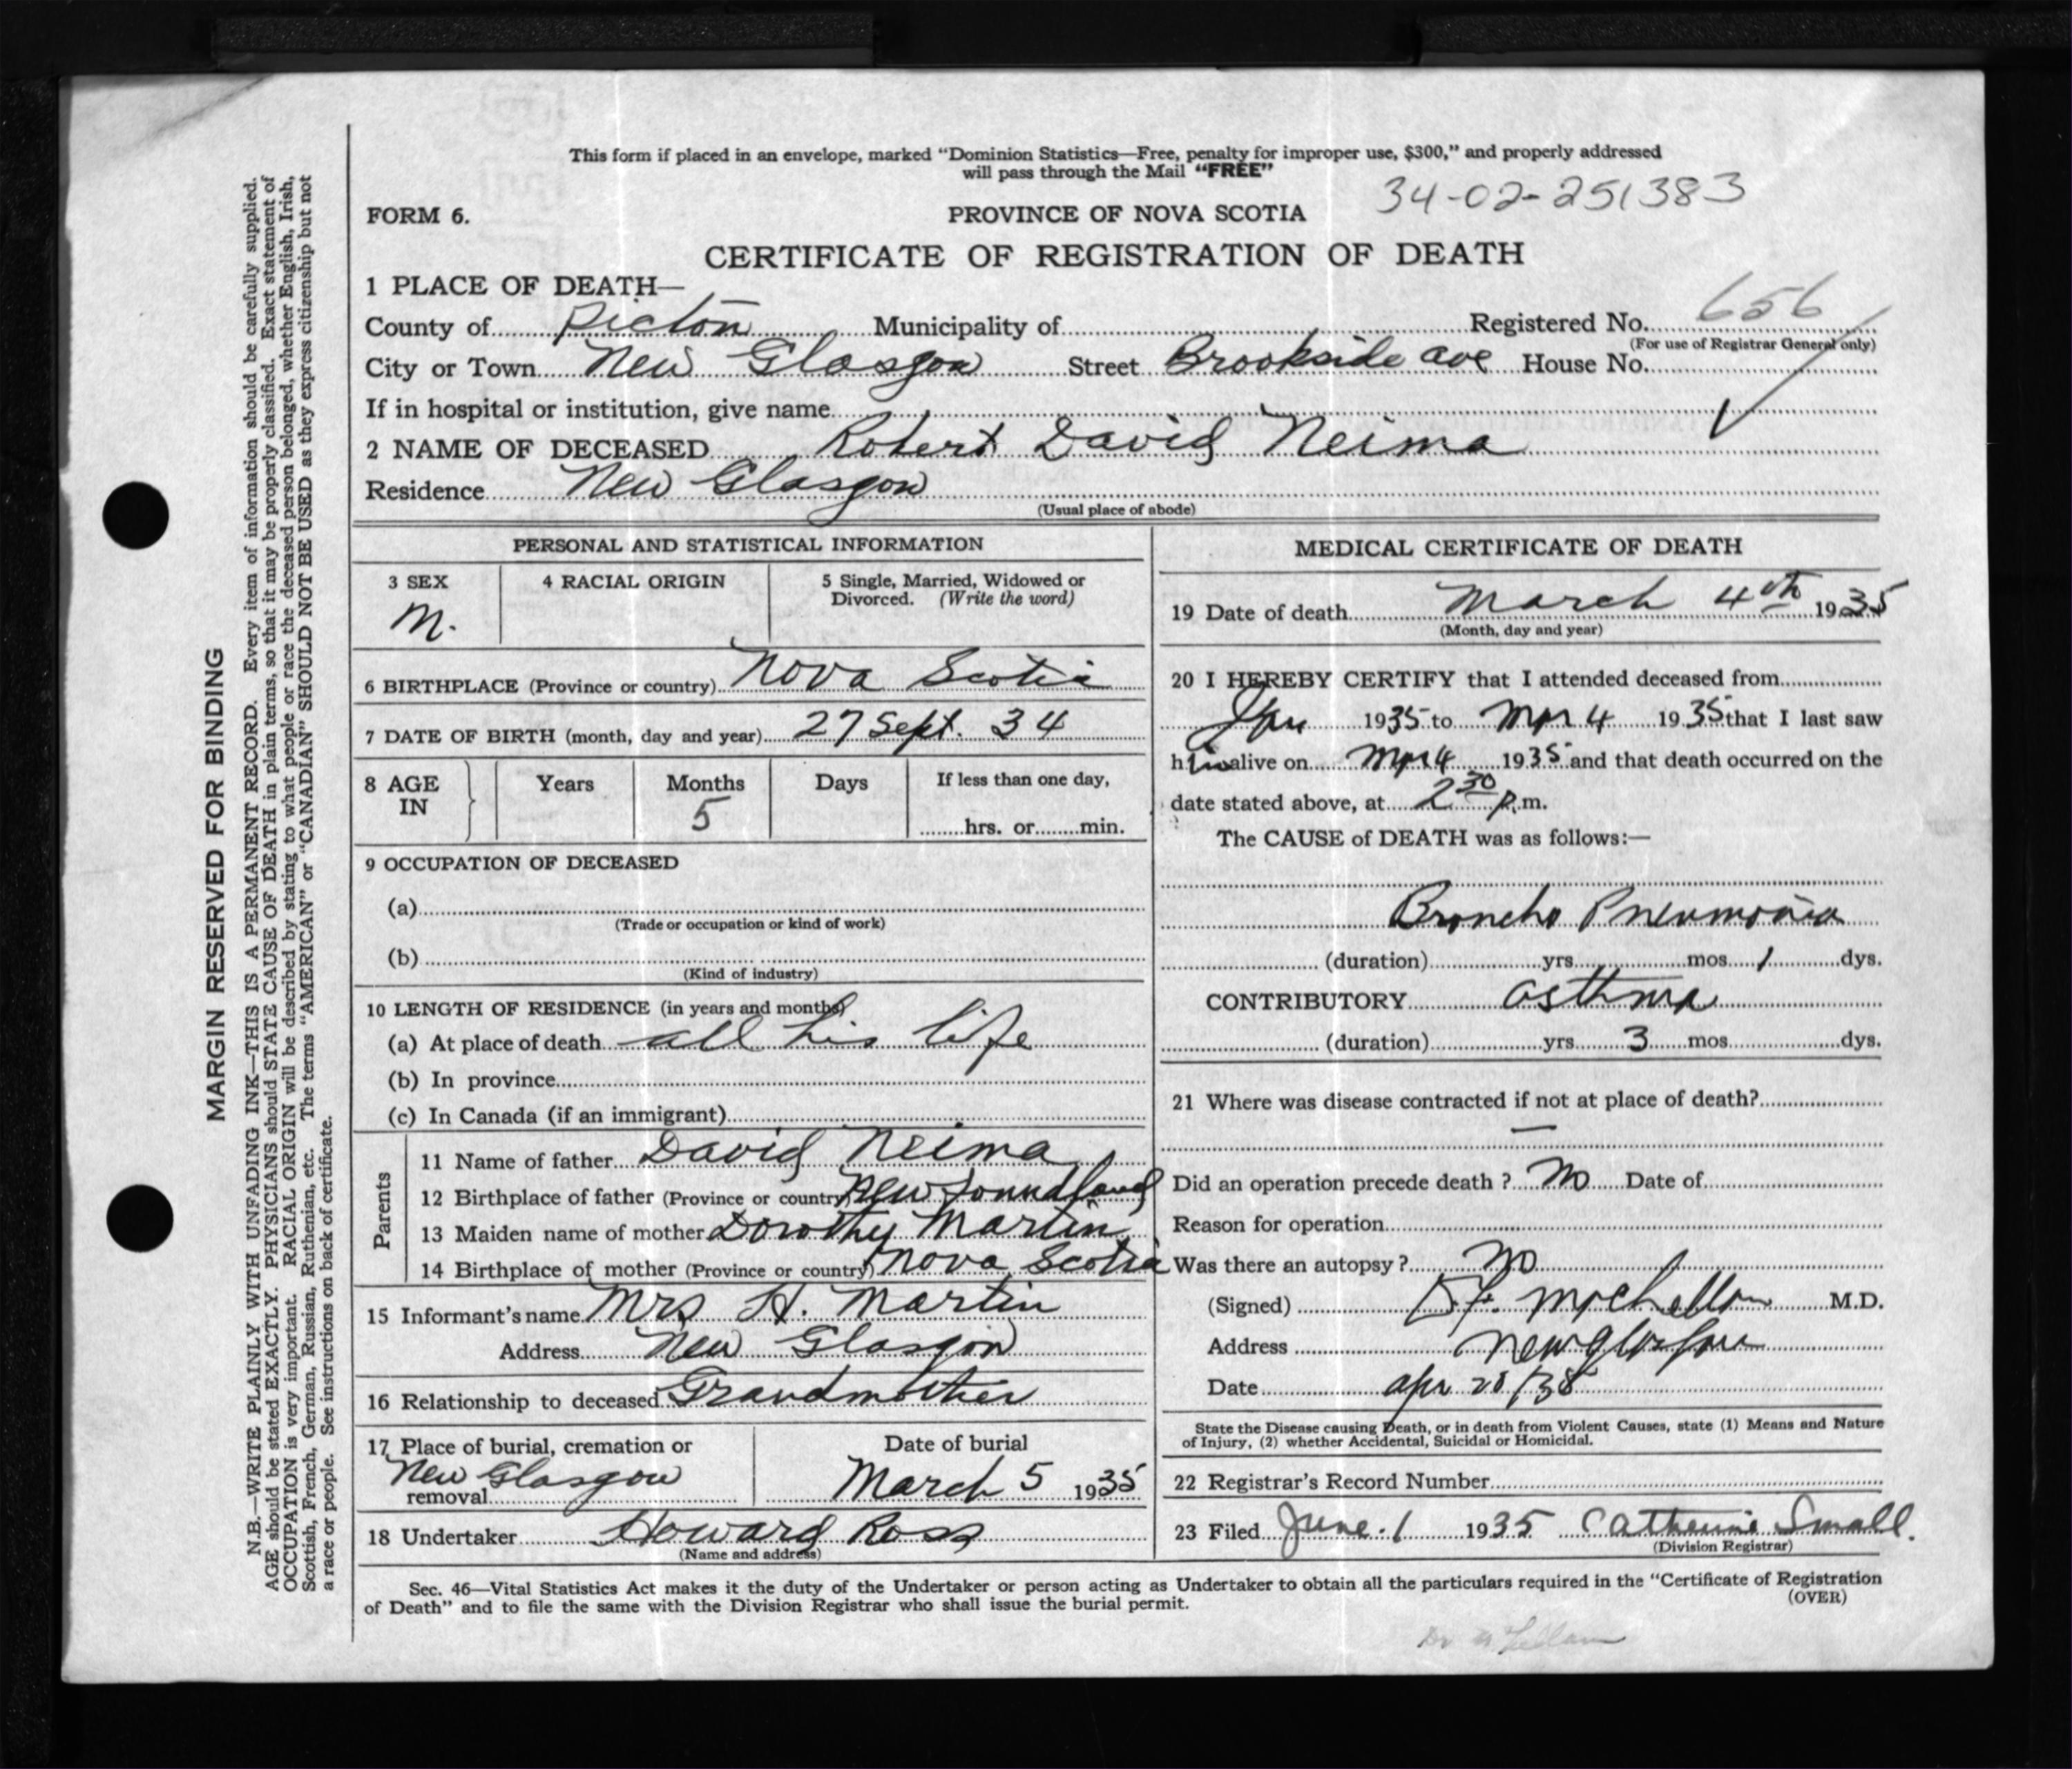 This form if placed in an envelope, marked “Dominion Statistics—Free, penalty for improper use, $300,” and properly addressed
will pass through the Mail “FREE”
34-02-251383
FORM 6.
PROVINCE OF NOVA SCOTIA
CERTIFICATE OF REGISTRATION OF DEATH
1 PLACE OF DEATH—
County of Pictou Municipality of Registered No. 656
(For use of Registrar General only)
City or Town New Glasgow Street Brookside ave House No.
If in hospital or institution, give name
2 NAME OF DECEASED Robert David Neima
Residence New Glasgow
(Usual place of abode)
PERSONAL AND STATISTICAL INFORMATION
3 SEX
M.
4 RACIAL ORIGIN
5 Single, Married, Widowed or
Divorced. (Write the word)
6 BIRTHPLACE (Province or country) Nova Scotia
7 DATE OF BIRTH (month, day and year) 27 Sept. 34
8 AGE
IN
Years
Months
5
Days
If less than one day,
hrs. or min.
9 OCCUPATION OF DECEASED
(a)
(Trade or occupation or kind of work)
(b)
(Kind of industry)
10 LENGTH OF RESIDENCE (in years and months)
(a) At place of death all his life
(b) In province
(c) In Canada (if an immigrant)
Parents
11 Name of father David Neima
12 Birthplace of father (Province or country) Newfoundland
13 Maiden name of mother Dorothy Martin
14 Birthplace of mother (Province or country) Nova Scotia
15 Informant's name Mrs H. Martin
Address New Glasgow
16 Relationship to deceased Grandmother
17 Place of burial, cremation or
New Glasgow
removal
Date of burial
March 5 1935
18 Undertaker Howard Ross
(Name and address)
MEDICAL CERTIFICATE OF DEATH
19 Date of death March 4th 1935
(Month, day and year)
20 I HEREBY CERTIFY that I attended deceased from
Jan 1935 to Mar 4 1935 that I last saw
him alive on Mar 4 1935 and that death occurred on the
date stated above, at 2 30 p.m.
The CAUSE of DEATH was as follows:—
Broncho Pneumonia
(duration) yrs mos 1 dys.
CONTRIBUTORY asthma
(duration) yrs 3 mos dys.
21 Where was disease contracted if not at place of death?
—
Did an operation precede death ? No Date of
Reason for operation
Was there an autopsy ? No
(Signed) M.D.
Address New Glasgow
Date apr
State the Disease causing Death, or in death from Violent Causes, state (1) Means and Nature
of Injury, (2) whether Accidental, Suicidal or Homicidal.
22 Registrar's Record Number
23 Filed June 1 1935 Catherine Small.
(Division Registrar)
Sec. 46—Vital Statistics Act makes it the duty of the Undertaker or person acting as Undertaker to obtain all the particulars required in the “Certificate of Registration
of Death” and to file the same with the Division Registrar who shall issue the burial permit.
(OVER)
MARGIN RESERVED FOR BINDING
N.B.—WRITE PLAINLY WITH UNFADING INK—THIS IS A PERMANENT RECORD. Every item of information should be carefully supplied.
AGE should be stated EXACTLY. PHYSICIANS should STATE CAUSE OF DEATH in plain terms, so that it may be properly classified. Exact statement of
OCCUPATION is very important. RACIAL ORIGIN will be described by stating to what people or race the deceased person belonged, whether English, Irish,
Scottish, French, German, Russian, Ruthenian, etc. The terms “AMERICAN” or “CANADIAN” SHOULD NOT BE USED as they express citizenship but not
a race or people. See instructions on back of certificate.